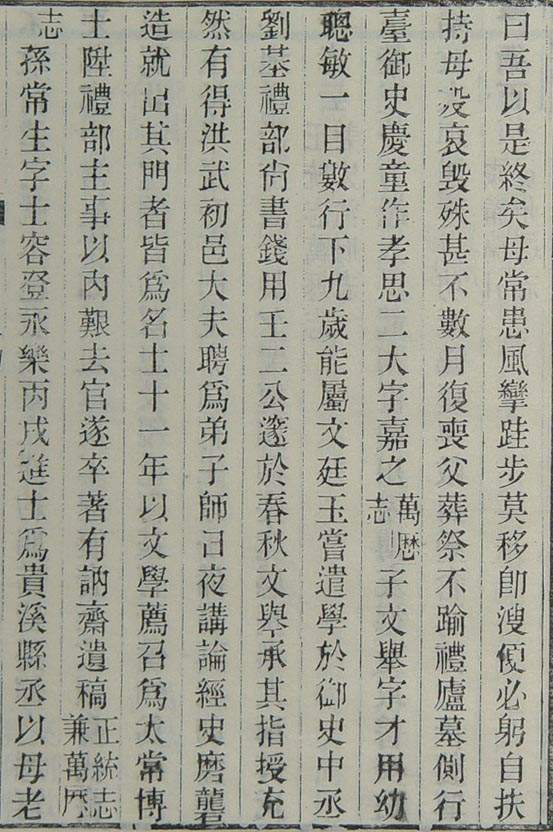 曰吾以是終矣母常患風攣跬步莫移卽溲便必躬自扶
持母歿哀毁殊甚不數月復喪父葬祭不踰禮廬墓側行
臺御史慶童作孝思二大字嘉之萬歷志子文舉字才用幼
聰敏一目數行下九歲能屬文廷玉嘗遣學於御史中丞
劉基禮部尚書錢用壬二公邃於春秋文舉承其指授充
然有得洪武初邑大夫聘爲弟子師日夜講論經史磨礱
造就出其門者皆爲名士十一年以文學薦召爲太常博
士陞禮部主事以內艱去官遂卒著有訥齋遺稿正統志兼萬歷
志孫常生字士容登永樂丙戌進士爲貴溪縣丞以母老